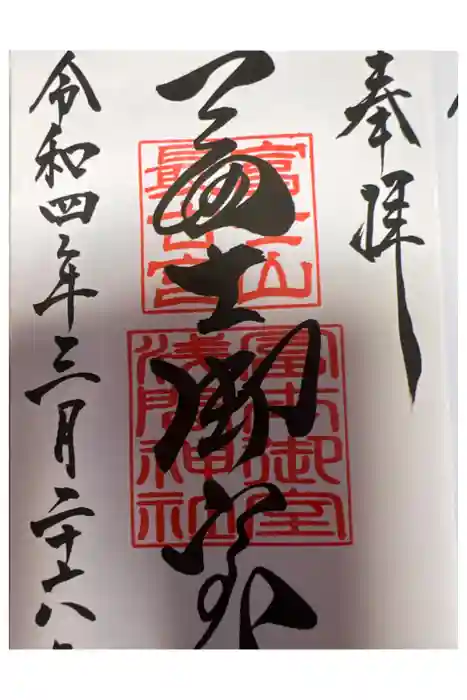 奉拝
冨士御室
富士山
最古宮
冨士御室
浅間神社
令和四年三月二十八